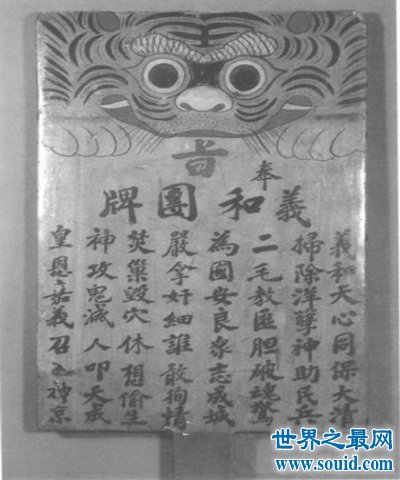 奉
旨
義和團牌
義和天心同保大清
掃除洋孽神助民兵
二毛教匪胆破魂驚
為国安良衆志成城
嚴拿奸細誰敢徇情
焚巢毀穴休想偷生
神攻鬼滅人叩天成
皇恩嘉義召神京
世界之最网
www.souid.com